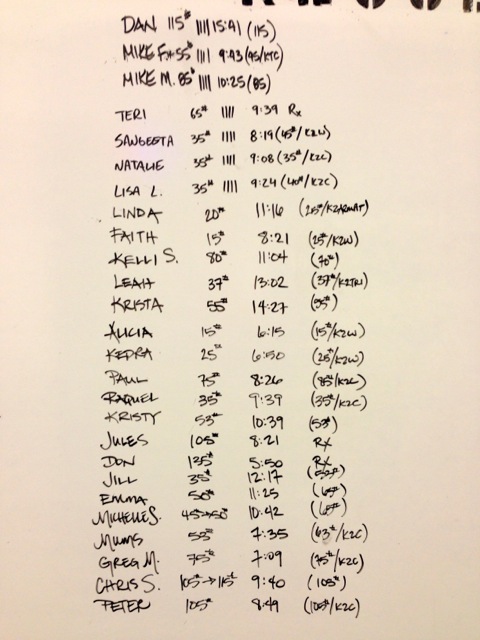 DAN 115# |||| 15:41 (115)
MIKE F. 55# |||| 9:43 (45/KTC)
MIKE M. 85# |||| 10:25 (85)
TERI 65# |||| 9:39 Rx
SANGEETA 35# |||| 8:19 (45#/K2W)
NATALIE 35# |||| 9:08 (35#/K2C)
LISA L. 35# |||| 9:24 (40#/K2C)
LINDA 20# 11:16
FAITH 15# 8:21 (25#/K2W)
KELLI S. 80# 11:04 (70#)
LEAH 37# 13:02 (37#/K2TRI)
KRISTA 55# 14:27 (55#)
ALICIA 15# 6:15 (15#/K2W)
KEDRA 25# 6:50 (25#/K2W)
PAUL 75# 8:26 (85#/K2C)
RAQUEL 35# 9:39 (35#/K2C)
KRISTY 53# 10:39 (53#)
JULES 105# 8:21 RX
DON 135# 5:50 RX
JILL 35# 12:17
EMMA 50# 11:25 (65#)
MICHELLE S. 45→50# 10:42 (65#)
MUMS 55# 7:35 (63#/K2C)
GREG M. 75# 7:09 (75#/K2C)
CHRIS S. 105#→115# 9:40 (103#)
PETER 105# 8:49 (105#/K2C)